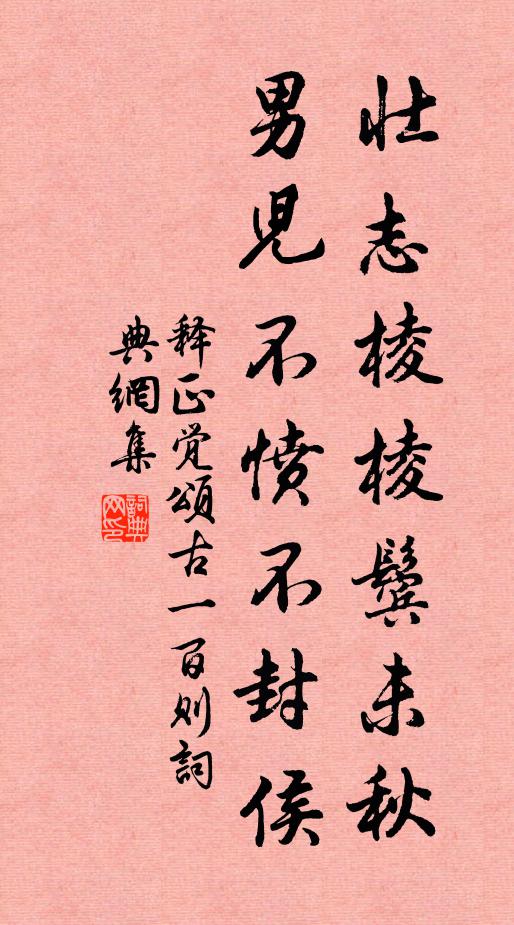 壮志棱棱鬓未秋
男児不愤不封侯
释正觉颂古一百则詞
典網集
詞典网印